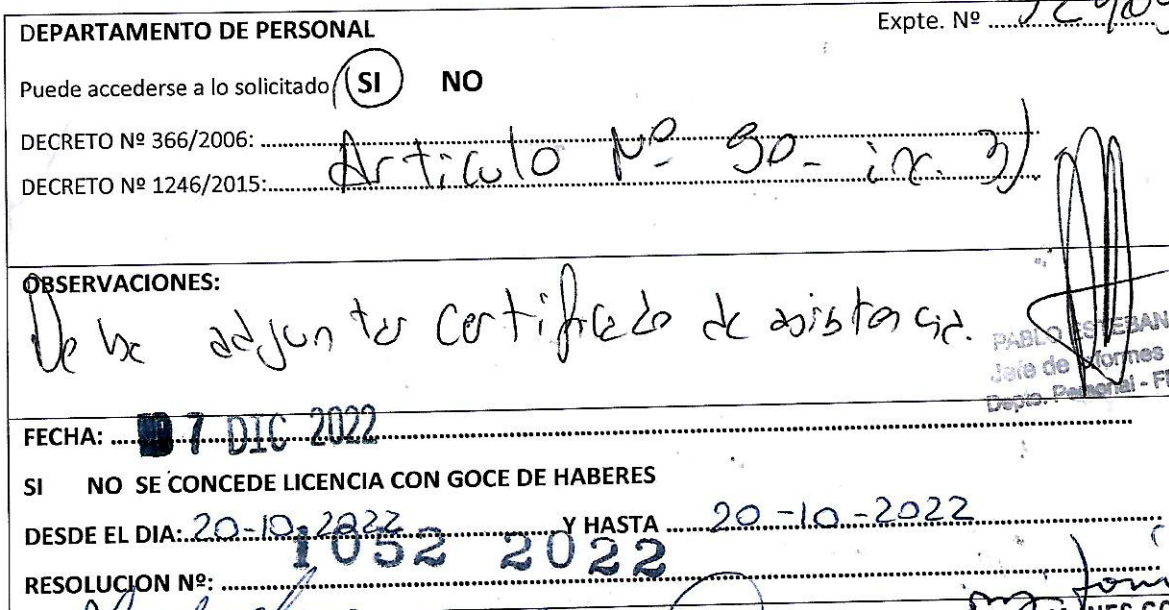 DEPARTAMENTO DE PERSONAL
Expte. Nº
Puede accederse a lo solicitado SI NO
DECRETO Nº 366/2006:
Artículo Nº 90- inc. 3)
DECRETO Nº 1246/2015:
OBSERVACIONES:
Debe adjuntar certificado de asistencia.
PABLO ESTEBAN
Jefe de Informes
Depto. Personal - F
FECHA: 7 DIC 2022
SI NO SE CONCEDE LICENCIA CON GOCE DE HABERES
DESDE EL DIA: 20-10-2022 Y HASTA 20-10-2022
1052 2022
RESOLUCION Nº: